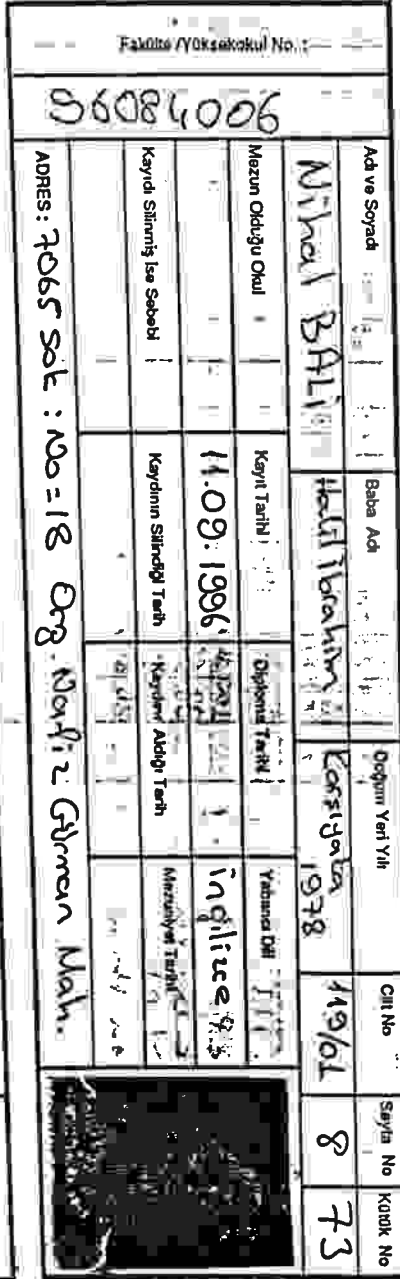 Fakülte /Yüksekokul No. :
96084006
Adı ve Soyadı Baba Adı Doğum Yeri Yılı Cilt No Sayfa No Kütük No
Nihal BALİ Halil İbrahim Karşıyaka 1978 119/01 8 73
Mezun Olduğu Okul Kayıt Tarihi Diploma Tarihi Yabancı Dil
11.09.1996 İngilizce
Kayıdı Silinmiş İse Sebebi Kaydının Silindiği Tarih Kaydını Aldığı Tarih Mezuniyet Tarihi
ADRES: 7065 Sok : No=18 Org. Nafiz Gürman Mah.